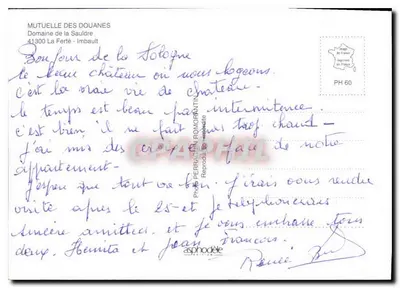 MUTUELLE DES DOUANES
Domaine de la Sauldre
41300 La Ferté - Imbault
Bonjour de la Sologne
le beau château où nous logeons.
c'est la vraie vie de chateau-
le temps est beau par intermitence.
c'est bien il ne fait pas trop chaud-
j'ai mis des face de notre
appartement-
J'espère que tout va bien. J'irais vous rendre
visite après le 25 et je telephonerais
Sincère amitiés et je vous embrasse tous
deux. et Jean François.
Renée
PH 60
asphodèle